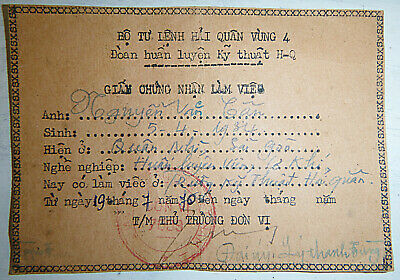 BỘ TƯ LỆNH HẢI QUÂN VÙNG 4
Đoàn huấn luyện Kỹ thuật H-Q
GIẤY CHỨNG NHẬN LÀM VIỆC
Anh: Nguyễn Văn
Sinh: 5-4-1954
Hiện ở: Quận Nhì Sài Gòn
Nghề nghiệp: Huấn luyện viên
Nay có làm việc ở: Kỹ Thuật Hải quân
Từ ngày 19 tháng 7 năm 70 đến ngày tháng năm
T/M THỦ TRƯỞNG ĐƠN VỊ